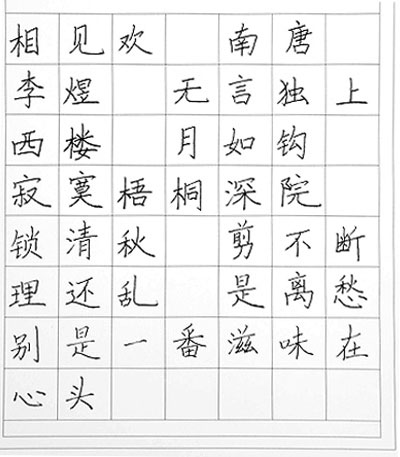 相见欢 南唐
李煜 无言独上
西楼 月如钩
寂寞梧桐深院
锁清秋 剪不断
理还乱 是离愁
别是一番滋味在
心头